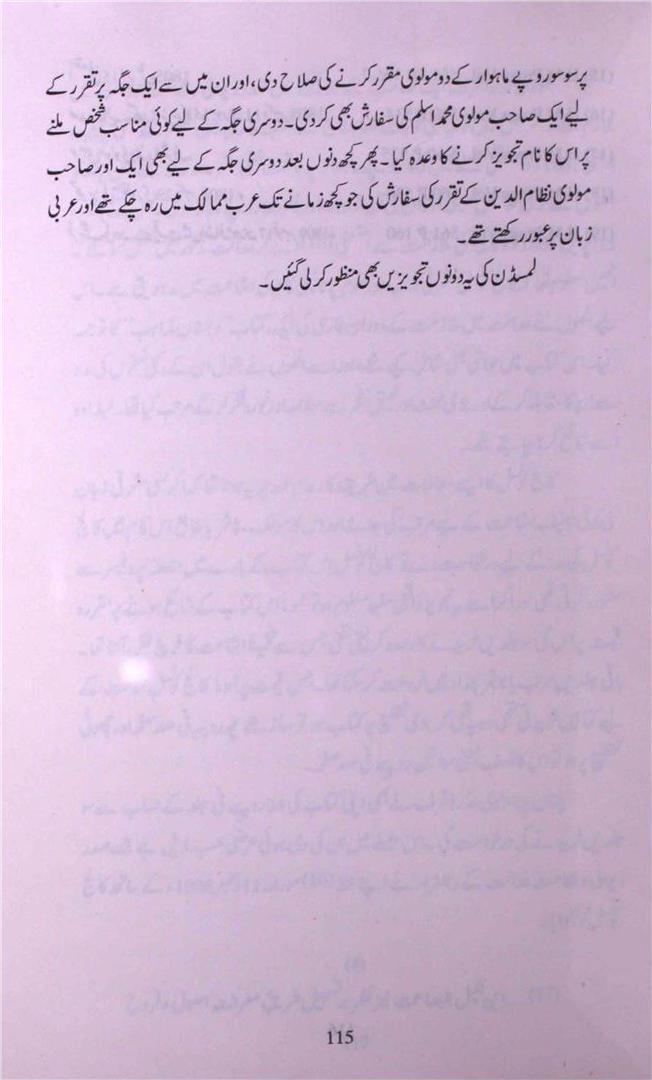 پر سو سو روپے ماہوار کے دو مولوی مقرر کرنے کی صلاح دی، اور ان میں سے ایک جگہ پر تقرر کے
لیے ایک صاحب مولوی محمد اسلم کی سفارش بھی کر دی۔ دوسری جگہ کے لیے کوئی مناسب شخص ملنے
پر اس کا نام تجویز کرنے کا وعدہ کیا۔ پھر کچھ دنوں بعد دوسری جگہ کے لیے بھی ایک اور صاحب
مولوی نظام الدین کے تقرر کی سفارش کی جو کچھ زمانے تک عرب ممالک میں رہ چکے تھے اور عربی
زبان پر عبور رکھتے تھے۔
لمسڈن کی یہ دونوں تجویزیں بھی منظور کر لی گئیں۔
115